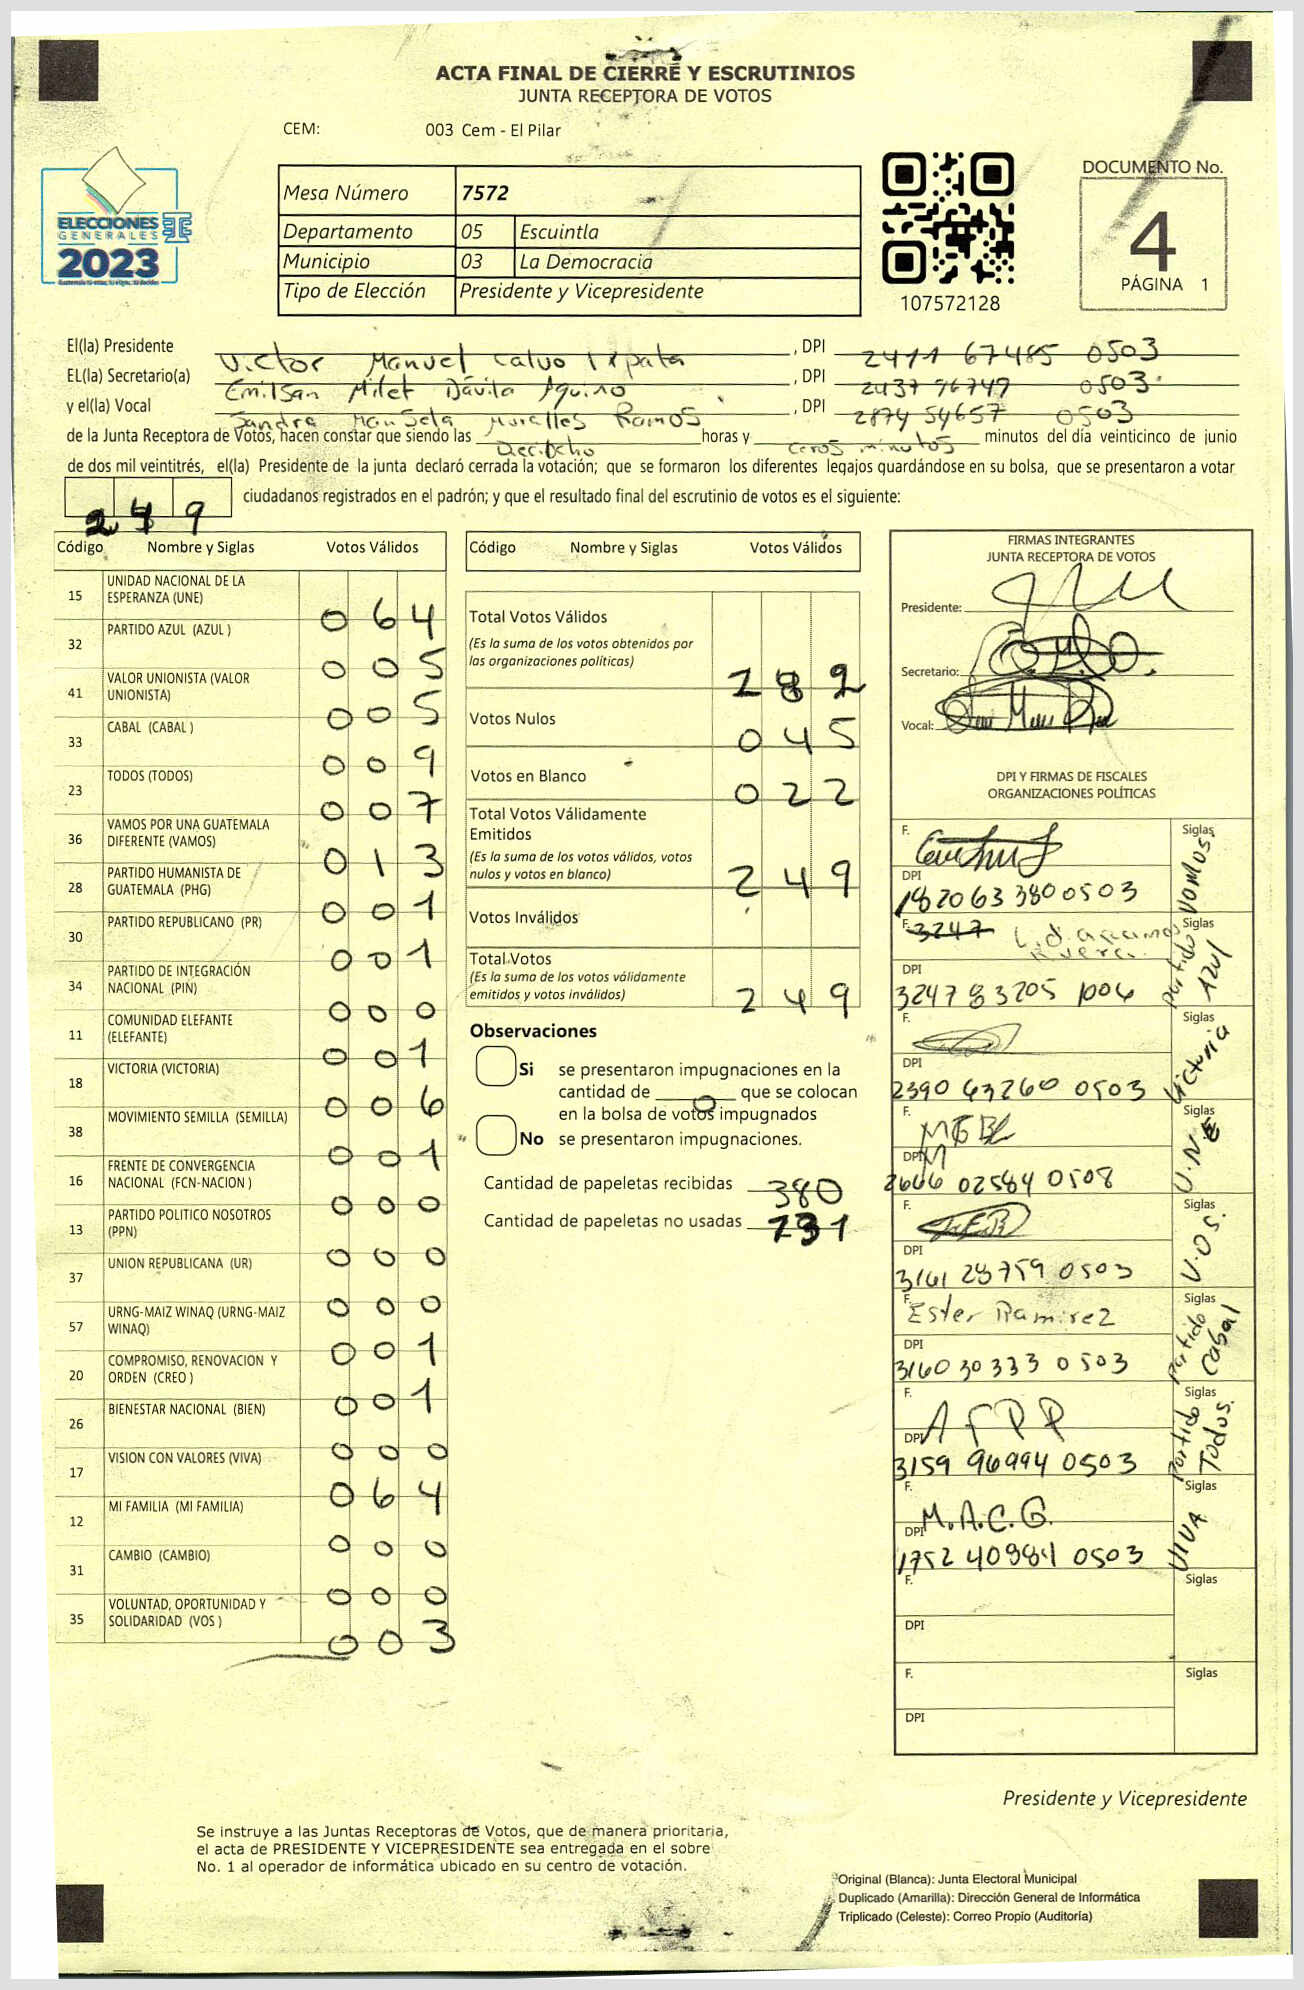 ACTA FINAL DE CIERRE Y ESCRUTINIOS
JUNTA RECEPTORA DE VOTOS
CEM: 003 Cem - El Pilar
ELECCIONES
GENERALES
TSE
2023
Mesa Número 7572
Departamento 05 Escuintla
Municipio 03 La Democracia
Tipo de Elección Presidente y Vicepresidente
107572128
DOCUMENTO No.
4
PÁGINA 1
El(la) Presidente Victor Manuel Calvo Ixpata , DPI 2411 67485 0503
EL(la) Secretario(a) Emilsan Milet Dávila Aquino , DPI 2437 96749 0503
y el(la) Vocal Sandra Manuela Muralles Ramos , DPI 2874 54657 0503
de la Junta Receptora de Votos, hacen constar que siendo las Dieciocho horas y ceros minutos minutos del día veinticinco de junio
de dos mil veintitrés, el(la) Presidente de la junta declaró cerrada la votación; que se formaron los diferentes legajos quardándose en su bolsa, que se presentaron a votar
249 ciudadanos registrados en el padrón; y que el resultado final del escrutinio de votos es el siguiente:
Código Nombre y Siglas Votos Válidos
15 UNIDAD NACIONAL DE LA ESPERANZA (UNE) 0 6 4
32 PARTIDO AZUL (AZUL ) 0 0 5
41 VALOR UNIONISTA (VALOR UNIONISTA) 0 0 5
33 CABAL (CABAL ) 0 0 9
23 TODOS (TODOS) 0 0 7
36 VAMOS POR UNA GUATEMALA DIFERENTE (VAMOS) 0 1 3
28 PARTIDO HUMANISTA DE GUATEMALA (PHG) 0 0 1
30 PARTIDO REPUBLICANO (PR) 0 0 1
34 PARTIDO DE INTEGRACIÓN NACIONAL (PIN) 0 0 0
11 COMUNIDAD ELEFANTE (ELEFANTE) 0 0 1
18 VICTORIA (VICTORIA) 0 0 6
38 MOVIMIENTO SEMILLA (SEMILLA) 0 0 1
16 FRENTE DE CONVERGENCIA NACIONAL (FCN-NACION ) 0 0 0
13 PARTIDO POLITICO NOSOTROS (PPN) 0 0 0
37 UNION REPUBLICANA (UR) 0 0 0
57 URNG-MAIZ WINAQ (URNG-MAIZ WINAQ) 0 0 1
20 COMPROMISO, RENOVACION Y ORDEN (CREO ) 0 0 1
26 BIENESTAR NACIONAL (BIEN) 0 0 0
17 VISION CON VALORES (VIVA) 0 6 4
12 MI FAMILIA (MI FAMILIA) 0 0 0
31 CAMBIO (CAMBIO) 0 0 0
35 VOLUNTAD, OPORTUNIDAD Y SOLIDARIDAD (VOS ) 0 0 3
Código Nombre y Siglas Votos Válidos
Total Votos Válidos
(Es la suma de los votos obtenidos por
las organizaciones políticas) 1 8 2
Votos Nulos 0 4 5
Votos en Blanco 0 2 2
Total Votos Válidamente
Emitidos
(Es la suma de los votos válidos, votos
nulos y votos en blanco) 2 4 9
Votos Inválidos
Total Votos
(Es la suma de los votos válidamente
emitidos y votos inválidos) 2 4 9
Observaciones
Si se presentaron impugnaciones en la
cantidad de 0 que se colocan
en la bolsa de votos impugnados
No se presentaron impugnaciones.
Cantidad de papeletas recibidas 380
Cantidad de papeletas no usadas 131
FIRMAS INTEGRANTES
JUNTA RECEPTORA DE VOTOS
Presidente:
Secretario:
Vocal:
DPI Y FIRMAS DE FISCALES
ORGANIZACIONES POLÍTICAS
F. Siglas VAMOS
DPI 18206 3380 0503
F. 3247 Siglas Partido Azul
DPI 3247 83205 1006
F. Siglas Victoria
DPI 2390 63260 0503
F. Siglas U.N.E
DPI 2606 02584 0508
F. Siglas V.O.S.
DPI 3161 28759 0503
F. Ester Ramirez Siglas Partido Cabal
DPI 3160 30333 0503
F. A F P P Siglas Partido Todos.
DPI 3159 96994 0503
F. M.A.C.G. Siglas VIVA
DPI 1752 40984 0503
F. Siglas
DPI
F. Siglas
DPI
Presidente y Vicepresidente
Se instruye a las Juntas Receptoras de Votos, que de manera prioritaria,
el acta de PRESIDENTE Y VICEPRESIDENTE sea entregada en el sobre
No. 1 al operador de informática ubicado en su centro de votación.
Original (Blanca): Junta Electoral Municipal
Duplicado (Amarilla): Dirección General de Informática
Triplicado (Celeste): Correo Propio (Auditoría)